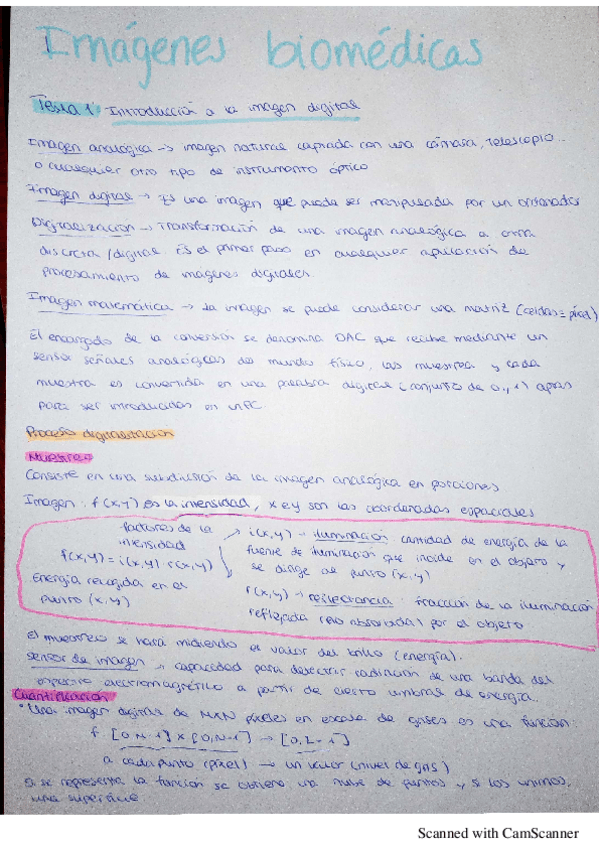 Imágenes biomédicas
Tema 1: Introducción a la imagen digital
Imagen analógica -> imagen natural captada con una cámara, telescopio...
o cualquier otro tipo de instrumento óptico
Imagen digital -> Es una imagen que puede ser manipulada por un ordenador
Digitalización -> Transformación de una imagen analógica a otra
discreta/digital. Es el primer paso en cualquier aplicación de
procesamiento de imágenes digitales.
Imagen matemática -> La imagen se puede considerar una matriz (celdas = píxel)
El encargado de la conversión se denomina DAC que recibe mediante un
sensor señales analógicas del mundo físico, las muestrea y cada
muestra es convertida en una palabra digital (conjunto de 0, 1) aptas
para ser introducidas en un PC.
Proceso digitalización
Muestreo
Consiste en una subdivisión de la imagen analógica en porciones
Imagen: f(x,y) es la intensidad, x e y son las coordenadas espaciales
factores de la
intensidad
f(x,y) = i(x,y) · r(x,y)
Energía recogida en el
punto (x,y)
i(x,y) = iluminación cantidad de energía de la
fuente de iluminación que incide en el objeto y
se dirige al punto (x,y)
r(x,y) = reflectancia fracción de la iluminación
reflejada (no absorbida) por el objeto
El muestreo se hará midiendo el valor del brillo (energía).
Sensor de imagen -> capacidad para detectar radiación de una banda del
espectro electromagnético a partir de cierto umbral de energía.
Cuantificación
* Una imagen digital de MxN píxeles en escala de grises es una función:
f [0, M-1] x [0, N-1] -> [0, L-1]
a cada punto (píxel) -> un valor (nivel de gris)
Si se representa la función se obtiene una nube de puntos y, si los unimos,
una superficie.
Scanned with CamScanner